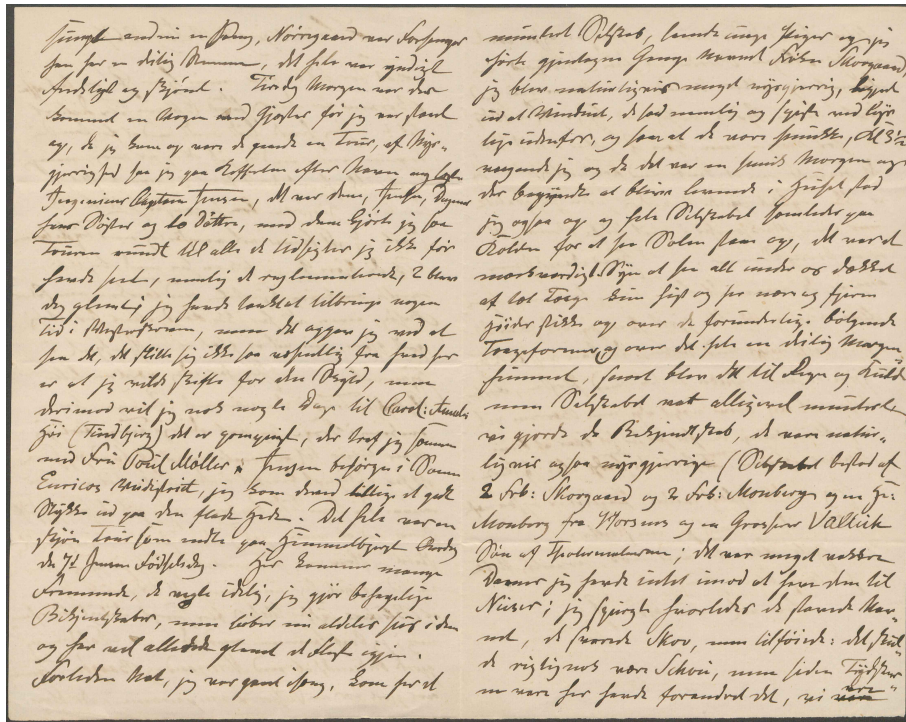 sungt endnu en Sang, Nørregaard var Forsanger
han har en deilig Stemme, det hele var yndigt
fredeligt og skjønt. Tirsdag Morgen var der
kommet en Vogn med Gjæster før jeg var staaet
op, da jeg kom og vare de gaaede en Tour, af Nys-
gjerrighed saa jeg paa Kofferten efter Navn og læste
Ingenieur Captein Jensen, det var dem, Jensen, Dagmar
hans Søster og to Døttre, med dem gjorte jeg saa
Touren rundt til alle de Udsigter jeg ikke før
havde seet, nemlig de reglementerede, 2 blev
dog glemt; jeg havde tænkt at tilbringe nogen
Tid i men det opgav jeg ved at
see det, det skilte sig ikke saa væsentlig fra hvad her
er at jeg vilde skifte for den Skyld, men
derimod vil jeg nok nogle Dage til Carol: Amalie
Høi (Tindbjerg) det er, der traf jeg sammen
med Fru Poul Møller, Jensen besørger i Sommer
Enricos, jeg kom derved tillige et godt
Stykke ud paa den flade Hede. Det hele var en
skjøn Tour som endte paa Himmelbjerget Onsdag
den 7de Fødselsdag. Her kommer mange
Fremmede, de vexle idelig; jeg gjør behagelige
Bekjentskaber, men lever mit aldeles
og har vel allerede glemt de fleste igjen.
Forleden Nat, jeg var gaaet isæng, kom her et
muntert Selskab, lærde unge Piger og jeg
hørte gjentagne Gange Navnet Frøken Skovgaard,
jeg blev naturligvis meget nysgjerrig, kigget
ud at Vinduet, de sad nemlig og spiste ved Lys
lige udenfor, og saae at de vare smukke, Kl 3½
vaagnede jeg og da det var en smuk Morgen og
der begyndte at blive levende i Huset stod
jeg ogsaa op og hele Selskabet samledes paa
Kolden for at see Solen staae op, det var et
mærkværdigt Syn at see alt under os dækket
af tæt Taage kun hist og her nær og fjern
Høider stikke op over de forunderlige bølgende
Taageformer, og over det hele en deilig Morgen-
himmel, snart blev det til Regn og Kulde
men Selskabet var alligevel muntert
vi gjorde da Bekjendtskab, de vare natur-
ligvis ogsaa nysgjerrige (Selskabet bestod af
2 Frk: Skovgaard og 2 Frk: Monberg og en Hr:
Monberg fra Horsens og en Grosserer Vallich
Søn af Theatermaleren; det var meget vakkre
Damer jeg havde intet imod at have dem til
Niecer; jeg spurgte hvorledes de stavede Nav-
net, de svarede Skov, men tilføiede: det skul-
de rigtignok være Schou, men siden Tydsker-
ne vare her havde forandret det, vi vare